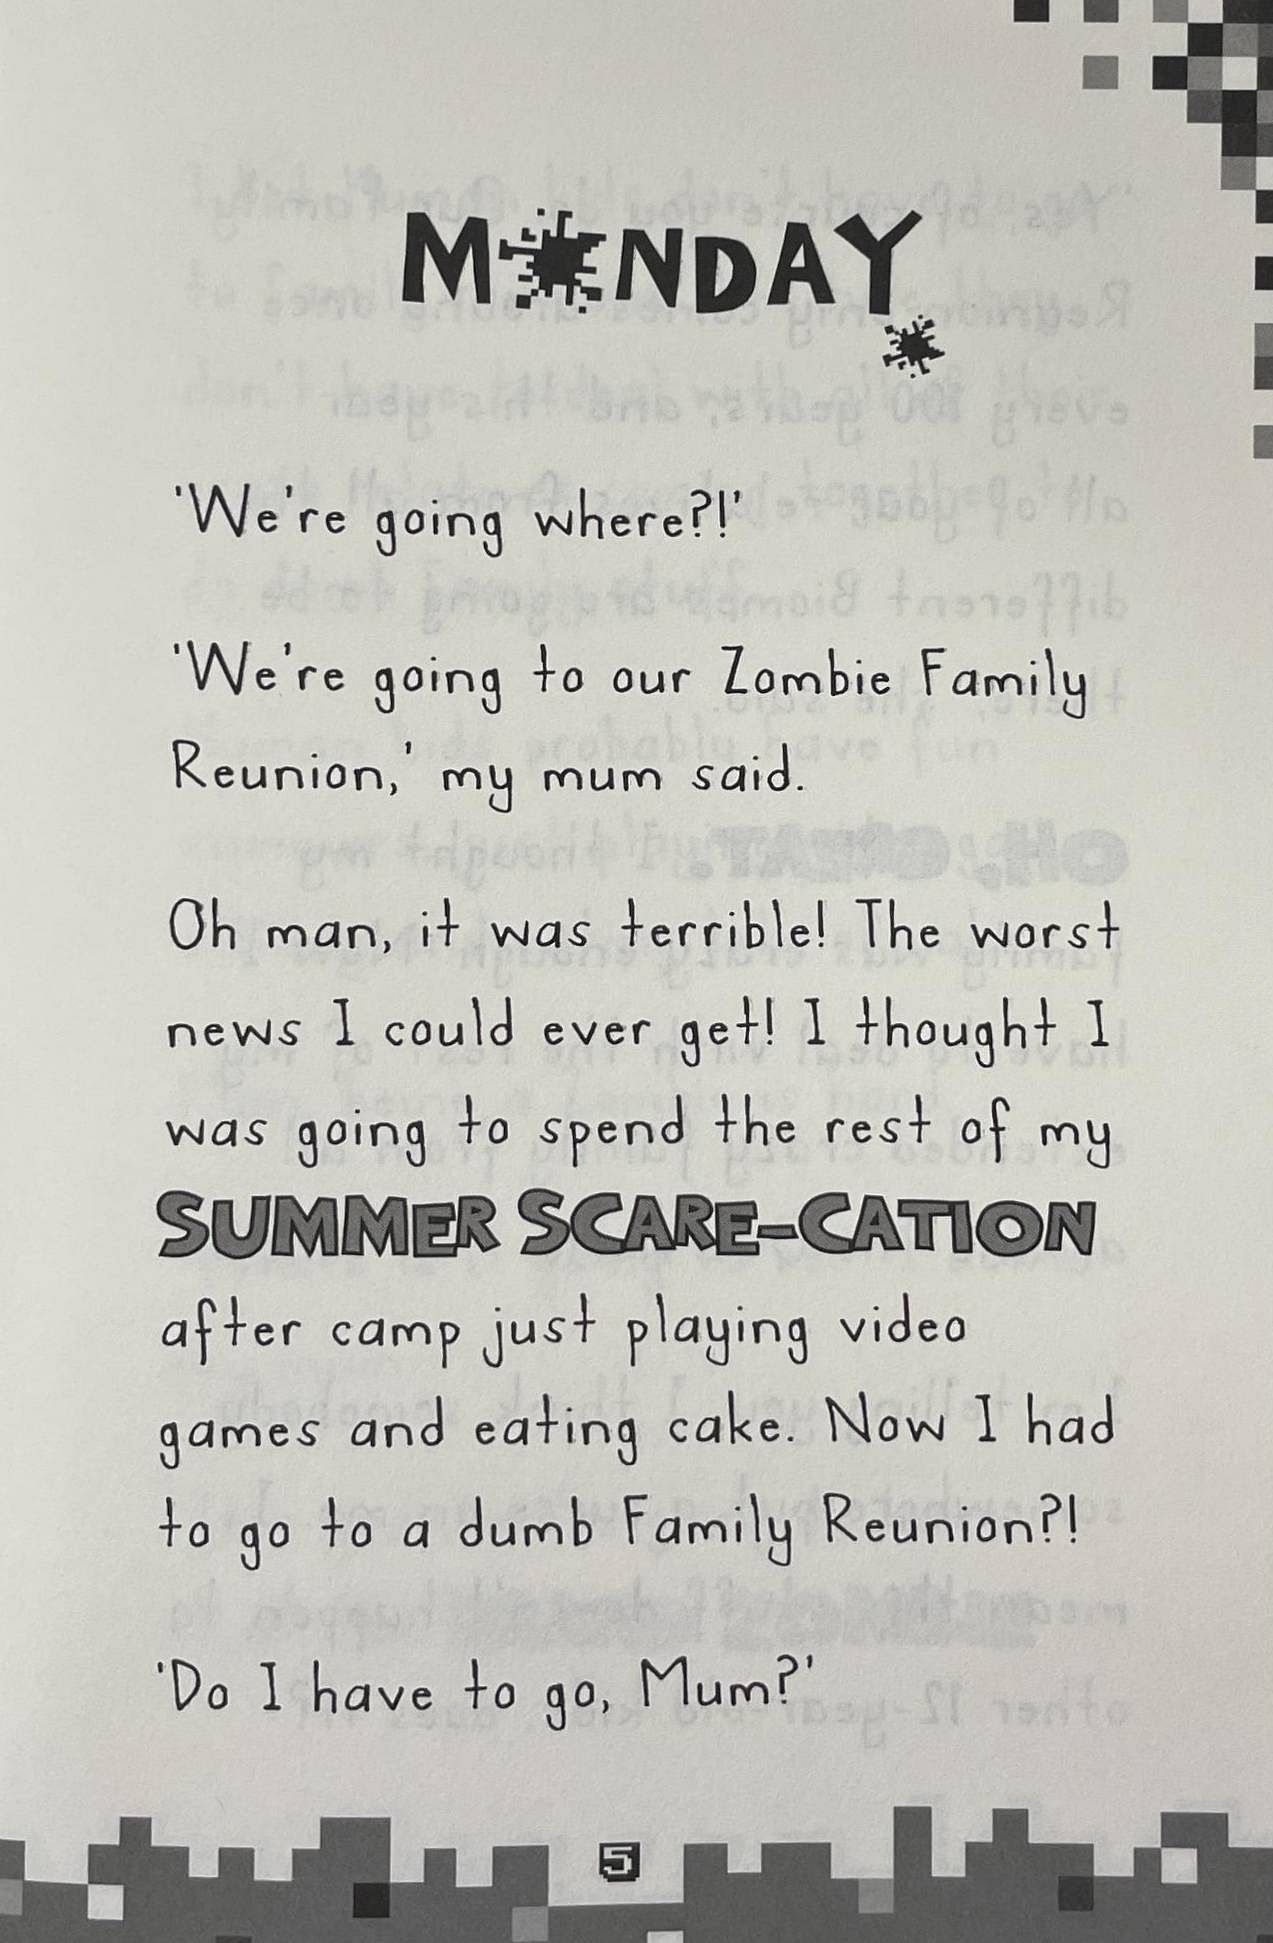 MONDAY
'We're going where?!'
'We're going to our Zombie Family
Reunion,' my mum said.
Oh man, it was terrible! The worst
news I could ever get! I thought I
was going to spend the rest of my
SUMMER SCARE-CATION
after camp just playing video
games and eating cake. Now I had
to go to a dumb Family Reunion?!
'Do I have to go, Mum?'
5